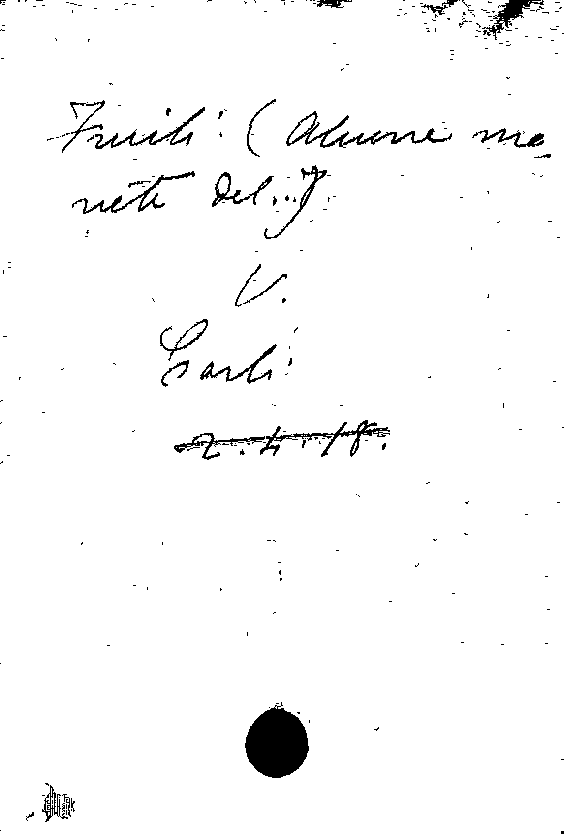 Friuli (Alcune mo-
nete del...)
V.
Carli
2.4.18.